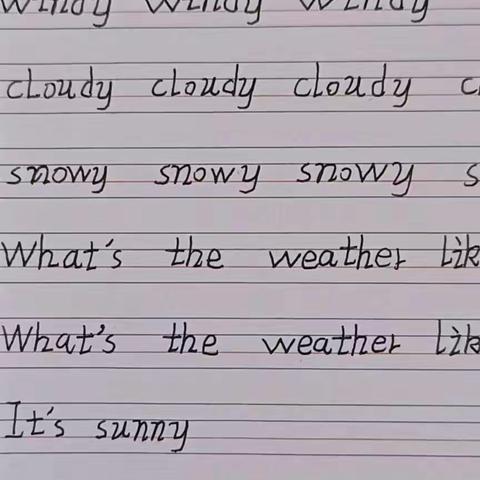 windy windy windy
cloudy cloudy cloudy
snowy snowy snowy
What's the weather
What's the weather
It's sunny